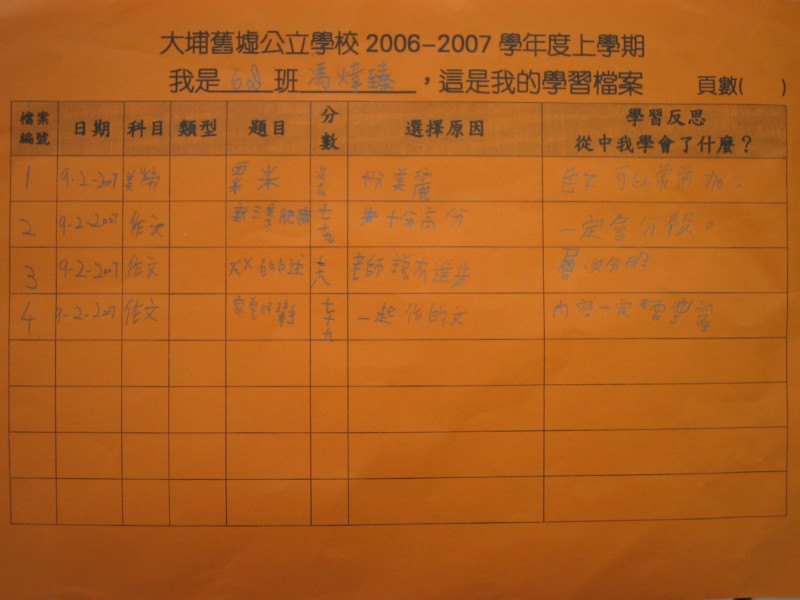 大埔舊墟公立學校 2006-2007 學年度上學期
我是 班 馮煒臻 ，這是我的學習檔案 頁數( )
檔案編號 日期 科目 類型 題目 分數 選擇原因 學習反思 從中我學會了什麼？
1 9-2-2007 美勞 粟米 十份美麗
2 9-2-2007 作文 七十九 十分高分 一定會分段。
3 9-2-2007 作文 老師說有進步 層次分明
4 9-2-2007 作文 七十九 一起作的文 內容一定要豐富